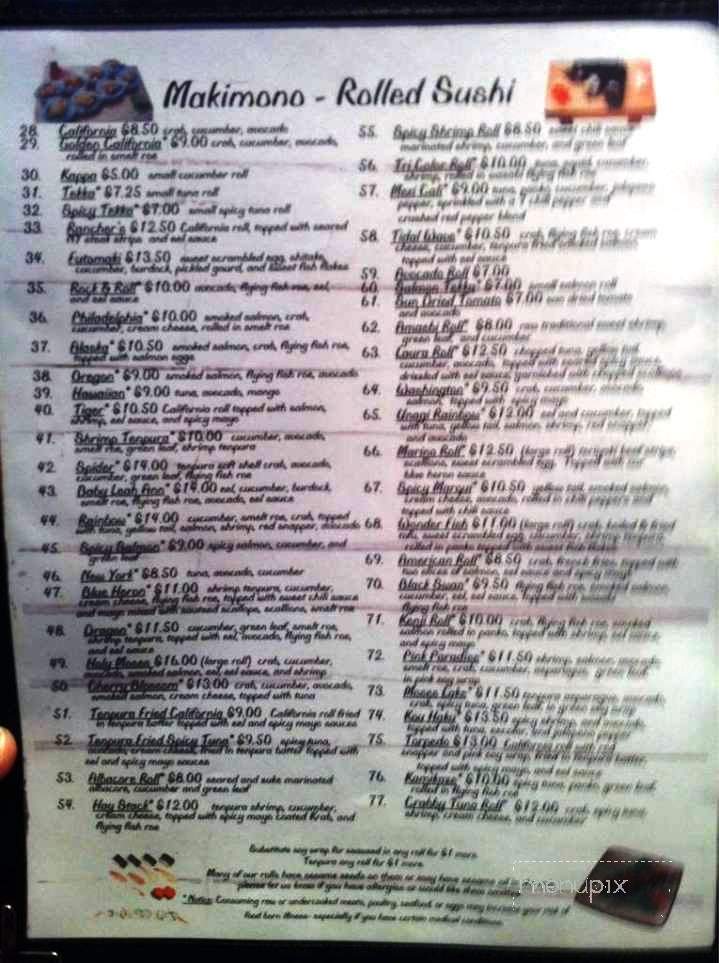 Makimono - Rolled Sushi
28. California $8.50 crab, cucumber, avocado
29. Golden California* $9.00 crab, cucumber, avocado,
rolled in smelt roe
30. Kappa $5.00 small cucumber roll
31. Tekka* $7.25 small tuna roll
32. Spicy Tekka* $7.00 small spicy tuna roll
33. Rancher's $12.50 California roll, topped with seared
NY steak strips and eel sauce
34. Futomaki $13.50 sweet scrambled egg, shitake,
cucumber, burdock, pickled gourd, and sweet fish flakes
35. Rock & Roll* $10.00 avocado, flying fish roe, eel,
and eel sauce
36. Philadelphia* $10.00 smoked salmon, crab,
cucumber, cream cheese, rolled in smelt roe
37. Alaska* $10.50 smoked salmon, crab, flying fish roe,
topped with salmon eggs
38. Oregon* $9.00 smoked salmon, flying fish roe, avocado
39. Hawaiian* $9.00 tuna, avocado, mango
40. Tiger* $10.50 California roll topped with salmon,
shrimp, eel sauce, and spicy mayo
41. Shrimp Tempura* $10.00 cucumber, avocado,
smelt roe, green leaf, shrimp tempura
42. Spider* $14.00 tempura soft shell crab, avocado,
cucumber, green leaf, flying fish roe
43. Baby Leah Ann* $14.00 eel, cucumber, burdock,
smelt roe, flying fish roe, avocado, eel sauce
44. Rainbow* $14.00 cucumber, smelt roe, crab, topped
with tuna, yellow tail, salmon, shrimp, red snapper, avocado
45. Spicy Salmon* $9.00 spicy salmon, cucumber, and
green leaf
46. New York* $8.50 tuna, avocado, cucumber
47. Blue Heron* $11.00 shrimp tempura, cucumber,
cream cheese, flying fish roe, topped with sweet chili sauce
and mayo mixed with sauteed scallops, scallions, smelt roe
48. Dragon* $11.50 cucumber, green leaf, smelt roe,
shrimp tempura, topped with eel, avocado, flying fish roe,
and eel sauce
49. Holy Moses $16.00 (large roll) crab, cucumber,
avocado, smoked salmon, eel, eel sauce, and shrimp
50. Cherry Blossom* $13.00 crab, cucumber, avocado,
smoked salmon, cream cheese, topped with tuna
51. Tempura Fried California $9.00 California roll fried
in tempura batter topped with eel and spicy mayo sauces
52. Tempura Fried Spicy Tuna* $9.50 spicy tuna,
cream cheese, fried in tempura batter topped with
eel and spicy mayo sauces
53. Albacore Roll* $8.00 seared and sake marinated
albacore, cucumber and green leaf
54. Hay Stack* $12.00 tempura shrimp, cucumber,
cream cheese, topped with spicy mayo coated Krab, and
flying fish roe
55. Spicy Shrimp Roll $8.50 sweet chili sauce
marinated shrimp, cucumber, and green leaf
56. Tri Color Roll* $10.00 tuna, squid, cucumber,
shrimp, rolled in wasabi flying fish roe
57. Maui Cali* $9.00 tuna, panko, cucumber, jalapeno
pepper, sprinkled with a 7 chili pepper and
crushed red pepper blend
58. Tidal Wave* $10.50 crab, flying fish roe, cream
cheese, cucumber, tempura fried smoked salmon
topped with eel sauce
59. Avocado Roll $7.00
60. Salmon Tekka* $7.00 small salmon roll
61. Sun Dried Tomato $7.00 sun dried tomato
and avocado
62. Amasty Roll* $8.00 raw traditional sweet shrimp,
green leaf, and cucumber
63. Laura Roll* $12.50 chopped tuna, yellow tail,
cucumber, avocado, topped with seared spicy sauce,
drizzled with eel sauce, garnished with chopped scallions
64. Washington* $9.50 crab, cucumber, avocado,
salmon, topped with spicy mayo
65. Unagi Rainbow* $12.00 eel and cucumber, topped
with tuna, yellow tail, salmon, shrimp, red snapper,
and avocado
66. Marino Roll* $12.50 (large roll) teriyaki beef strips,
scallions, sweet scrambled egg. Topped with our
blue heron sauce
67. Spicy Margui* $10.50 yellow tail, smoked salmon,
cream cheese, avocado, rolled in chili peppers and
topped with chili sauce
68. Wonder Fish $11.00 (large roll) crab, boiled & fried
tofu, sweet scrambled egg, cucumber, shrimp tempura
rolled in panko topped with sweet fish flakes
69. American Roll* $8.50 crab, french fries, topped with
two slices of salmon, eel sauce and spicy mayo
70. Black Swan* $9.50 flying fish roe, smoked salmon,
cucumber, eel, eel sauce, topped with wasabi
flying fish roe
71. Kenji Roll* $10.00 crab, flying fish roe, smoked
salmon rolled in panko, topped with shrimp, eel sauce,
and spicy mayo
72. Pink Paradise* $11.50 shrimp, salmon, avocado,
smelt roe, crab, cucumber, asparagus, green leaf,
in pink soy wrap
73. Moses Lake* $11.50 tempura asparagus, avocado,
crab, spicy tuna, green leaf, in green soy wrap
74. Kou Haku* $13.50 spicy shrimp, and avocado,
topped with tuna, escolar, and jalapeno pepper
75. Torpedo $13.00 California roll with red
snapper and pink soy wrap, fried in tempura batter,
topped with spicy mayo, and eel sauce
76. Kamikaze* $10.00 spicy tuna, panko, green leaf,
rolled in flying fish roe
77. Crabby Tuna Roll* $12.00 crab, spicy tuna,
shrimp, cream cheese, and cucumber
Substitute soy wrap for seaweed in any roll for $1 more.
Tempura any roll for $1 more.
Many of our rolls have sesame seeds on them or may have sesame oil
please let us know if you have allergies or would like them omitted
* Notice: Consuming raw or undercooked meats, poultry, seafood, or eggs may increase your risk of
food born illness- especially if you have certain medical conditions
menupix